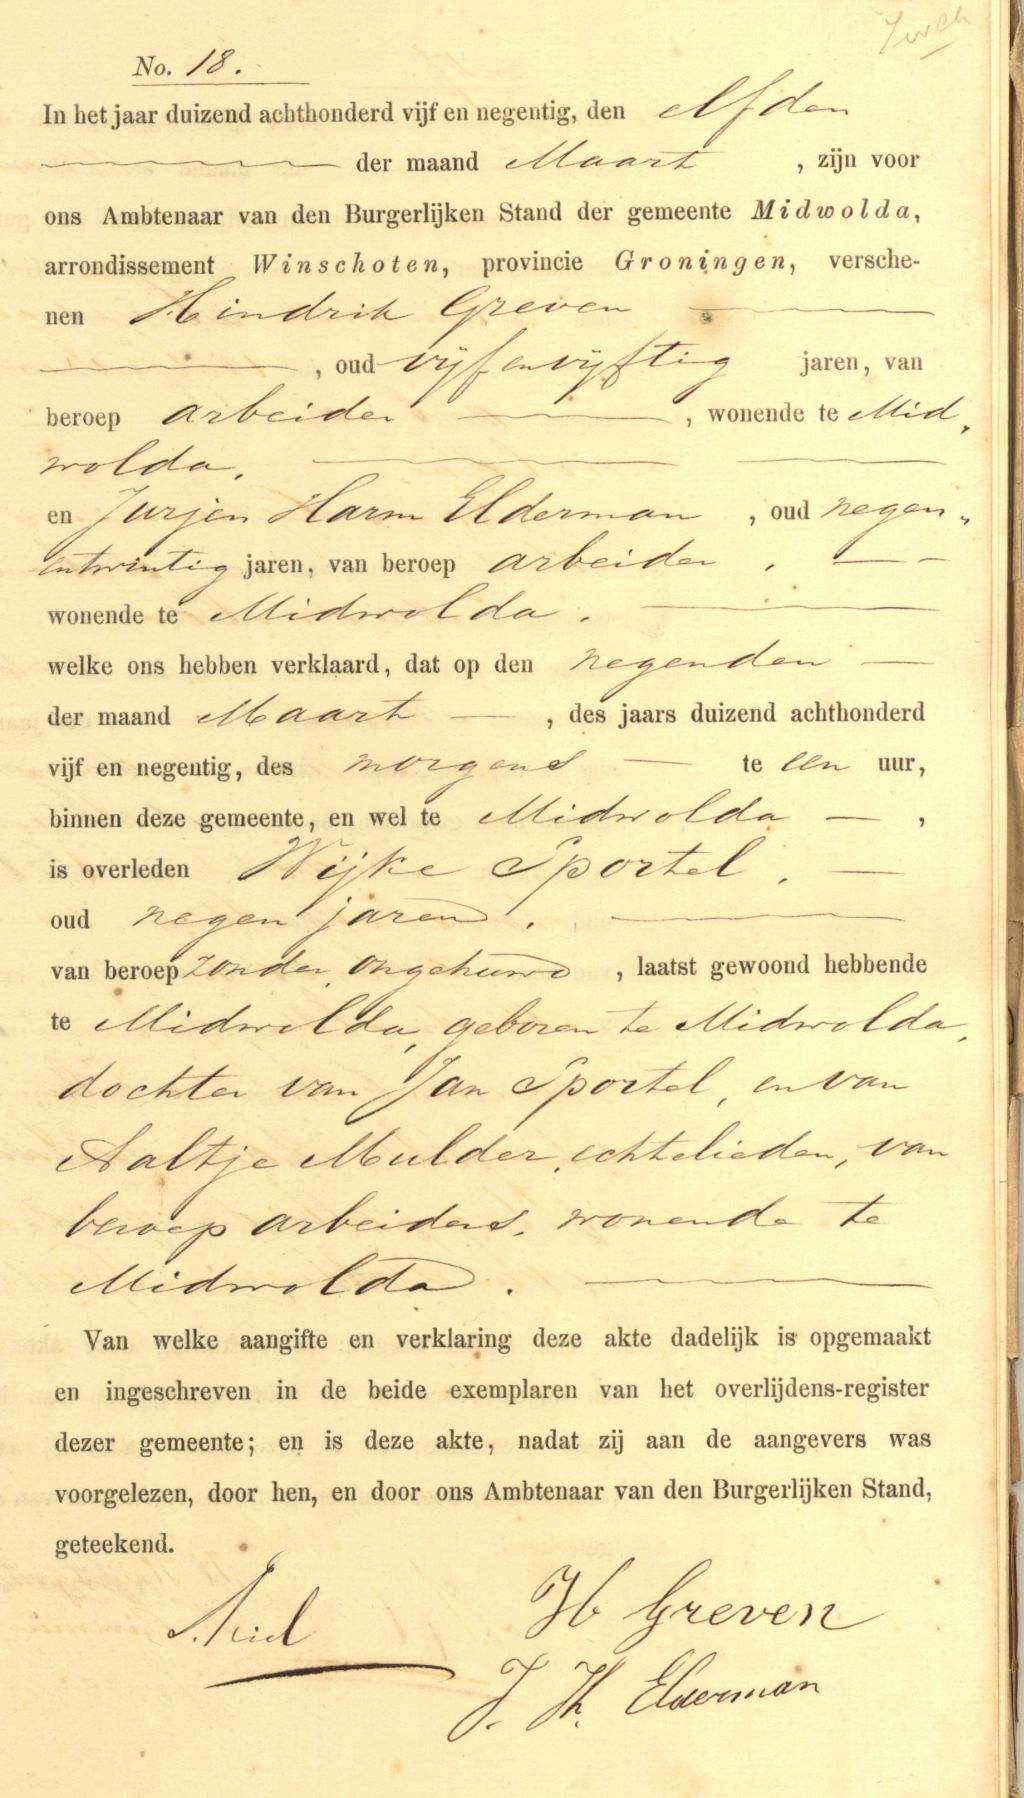 No. 18.
In het jaar duizend achthonderd vijf en negentig, den elfden
der maand Maart, zijn voor
ons Ambtenaar van den Burgerlijken Stand der gemeente Midwolda,
arrondissement Winschoten, provincie Groningen, versche-
nen Hindrik Greven
, oud vijf en vijftig jaren, van
beroep arbeider, wonende te Mid„
wolda.
en Jurjen Harm Elderman, oud negen„
entwintig jaren, van beroep arbeider.
wonende te Midwolda.
welke ons hebben verklaard, dat op den negenden
der maand Maart, des jaars duizend achthonderd
vijf en negentig, des morgens te een uur,
binnen deze gemeente, en wel te Midwolda,
is overleden Wijke Sportel.
oud negen jaren.
van beroep zonder, ongehuwd, laatst gewoond hebbende
te Midwolda, geboren te Midwolda,
dochter van Jan Sportel, en van
Aaltje Mulder, echtelieden, van
beroep arbeiders, wonende te
Midwolda.
Van welke aangifte en verklaring deze akte dadelijk is opgemaakt
en ingeschreven in de beide exemplaren van het overlijdens-register
dezer gemeente; en is deze akte, nadat zij aan de aangevers was
voorgelezen, door hen, en door ons Ambtenaar van den Burgerlijken Stand,
geteekend.
H Greven
J. H. Elderman